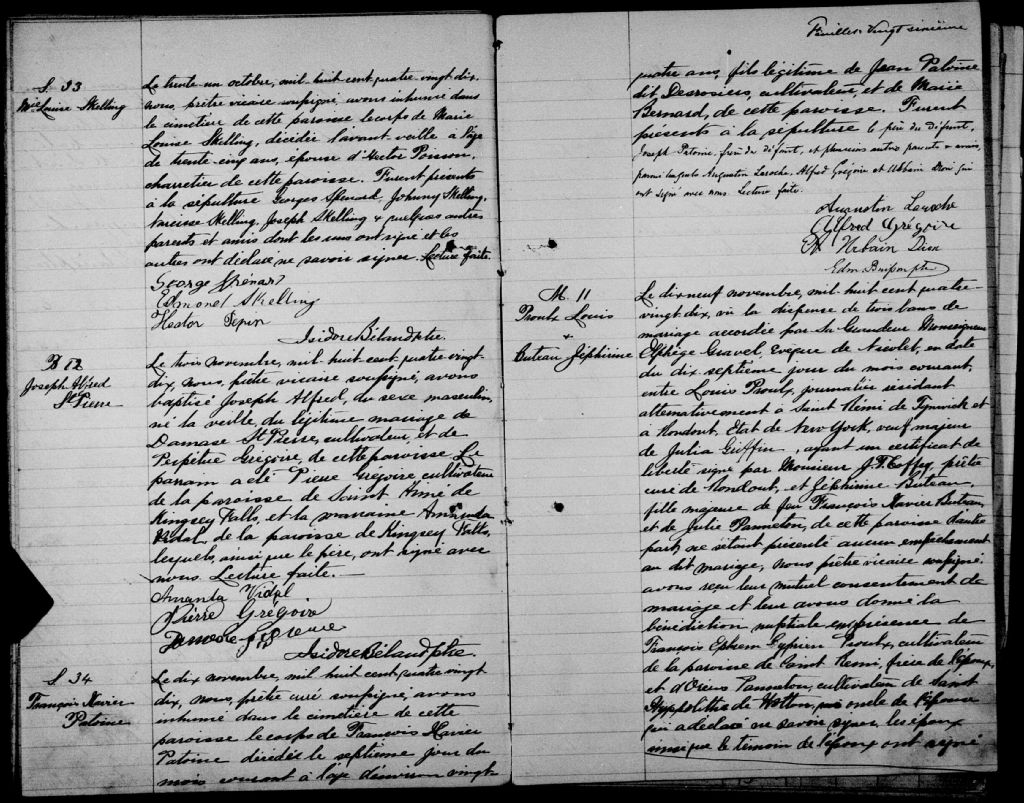 S. 33
Mie Louise Skelling
Le trente un octobre, mil huit cent quatre vingt dix,
nous, prêtre vicaire soussigné, avons inhumé dans
le cimetière de cette paroisse le corps de Marie
Louise Skelling, décédée l'avant veille à l'age
de trente cinq ans, épouse d'Hector Poisson,
charretier de cette paroisse. Furent présents
à la sépulture Georges Spenard, Johnny Skelling,
Narcisse Skelling, Joseph Skelling & quelques autres
parents et amis dont les uns ont signé et les
autres ont déclaré ne savoir signer. Lecture faite.
George Spénard
Edmond Skelling
Hector Pepin
Isidore Béland ptre.
B 12
Joseph Alfred
St Pierre
Le trois novembre, mil huit cent quatre vingt
dix, nous, prêtre vicaire soussigné, avons
baptisé Joseph Alfred, du sexe masculin,
né la veille, du légitime mariage de
Damase St Pierre, cultivateur, et de
Perpétue Grégoire, de cette paroisse. Le
parrain a été Pierre Grégoire, cultivateur
de la paroisse de Saint Aimé de
Kingsey Falls, et la marraine Amanda
Vidal, de la paroisse de Kingsey Falls,
lesquels, ainsi que le père, ont signé avec
nous. Lecture faite.
Amanta Vidal
Pierre Grégoire
Damase St Pierre
Isidore Béland ptre.
S. 34
François Xavier
Patoine
Le dix novembre, mil huit cent quatre vingt
dix, nous, prêtre curé soussigné, avons
inhumé dans le cimetière de cette
paroisse le corps de François Xavier
Patoine décédé le septième jour du
mois courant à l'age d'environ vingt-
Feuillet Vingt sixième
quatre ans, fils légitime de Jean Patoine
dit Desrosiers, cultivateur, et de Marie
Bernard, de cette paroisse. Furent
présents à la sépulture le père du défunt,
Joseph Patoine, frère du défunt, et plusieurs autres parents & amis,
parmi lesquels Augustin Laroche, Alfred Grégoire et Urbain Dion qui
ont signé avec nous. Lecture faite.
Augustin Laroche
Alfred Grégoire
Urbain Dion
Edm. Buisson ptre
M. 11
Proulx Louis
&
Buteau Zéphirine
Le dix neuf novembre, mil huit cent quatre-
vingt dix, vu la dispense de trois bans de
mariage accordée par Sa Grandeur Monseigneur
Elphège Gravel, Evêque de Nicolet, en date
du dix septième jour du mois courant,
entre Louis Proulx, journalier résidant
alternativement à Saint Rémi de Tingwick et
à Rondout, Etat de New York, veuf majeur
de Julia Griffin, ayant un certificat de
liberté signé par Monsieur J. F. Coffey, prêtre
curé de Rondout, et Zéphirine Buteau,
fille majeure de feu François Xavier Buteau,
et de Julie Panneton, de cette paroisse d'autre
part; ne s'étant présenté aucun empêchement
au dit mariage, nous prêtre vicaire soussigné,
avons reçu leur mutuel consentement de
mariage et leur avons donné la
bénédiction nuptiale en présence de
François Ephrem Cyprien Proulx, cultivateur
de la paroisse de Saint Remi, frère de l'époux,
et d'Orens Panneton, cultivateur de Saint
Hyppolite de Wotton, oncle de l'épouse
qui a déclaré ne savoir signer, les époux
ainsi que le témoin de l'époux ont signé